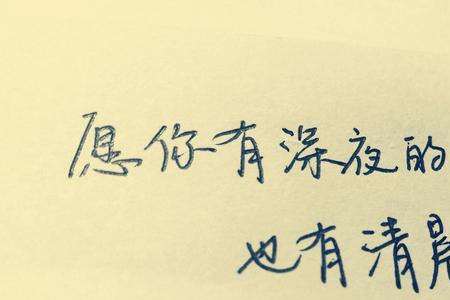 愿你有深夜的
也有清晨